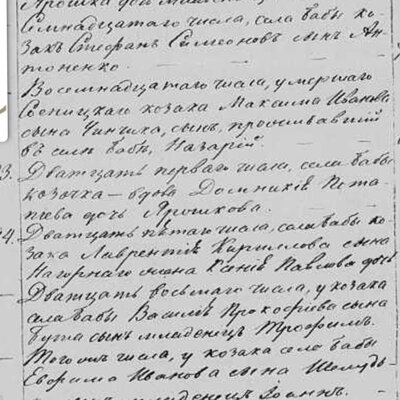 Ярошка доч
Семнадцатаго числа, села Бабы ко-
закъ Стефанъ Симеоновъ сынъ Ан-
тоненко.
Восемнадцатаго числа, умершаго
козака Максима Иванова
сына Чинчика, сынъ, проживавшій
въ селѣ Бабѣ, Назарій.
23. Дватцать перваго числа, села Бабы
козачка – вдова Домникія Пота-
піева дочь Ярошкова.
24. Дватцать пятаго числа, села Бабы ко-
зака Лаврентія Кирилова сына
Нагорнаго жена Ксенія Павлова дочь
Дватцать восьмаго числа, у козака
села Бабы Василія Прокофіева сына
Бута сынъ младенецъ Трофимъ.
Того жъ числа, у козака села Бабы
Евфима Иванова сына Шелудь-
младенецъ Іоаннъ.